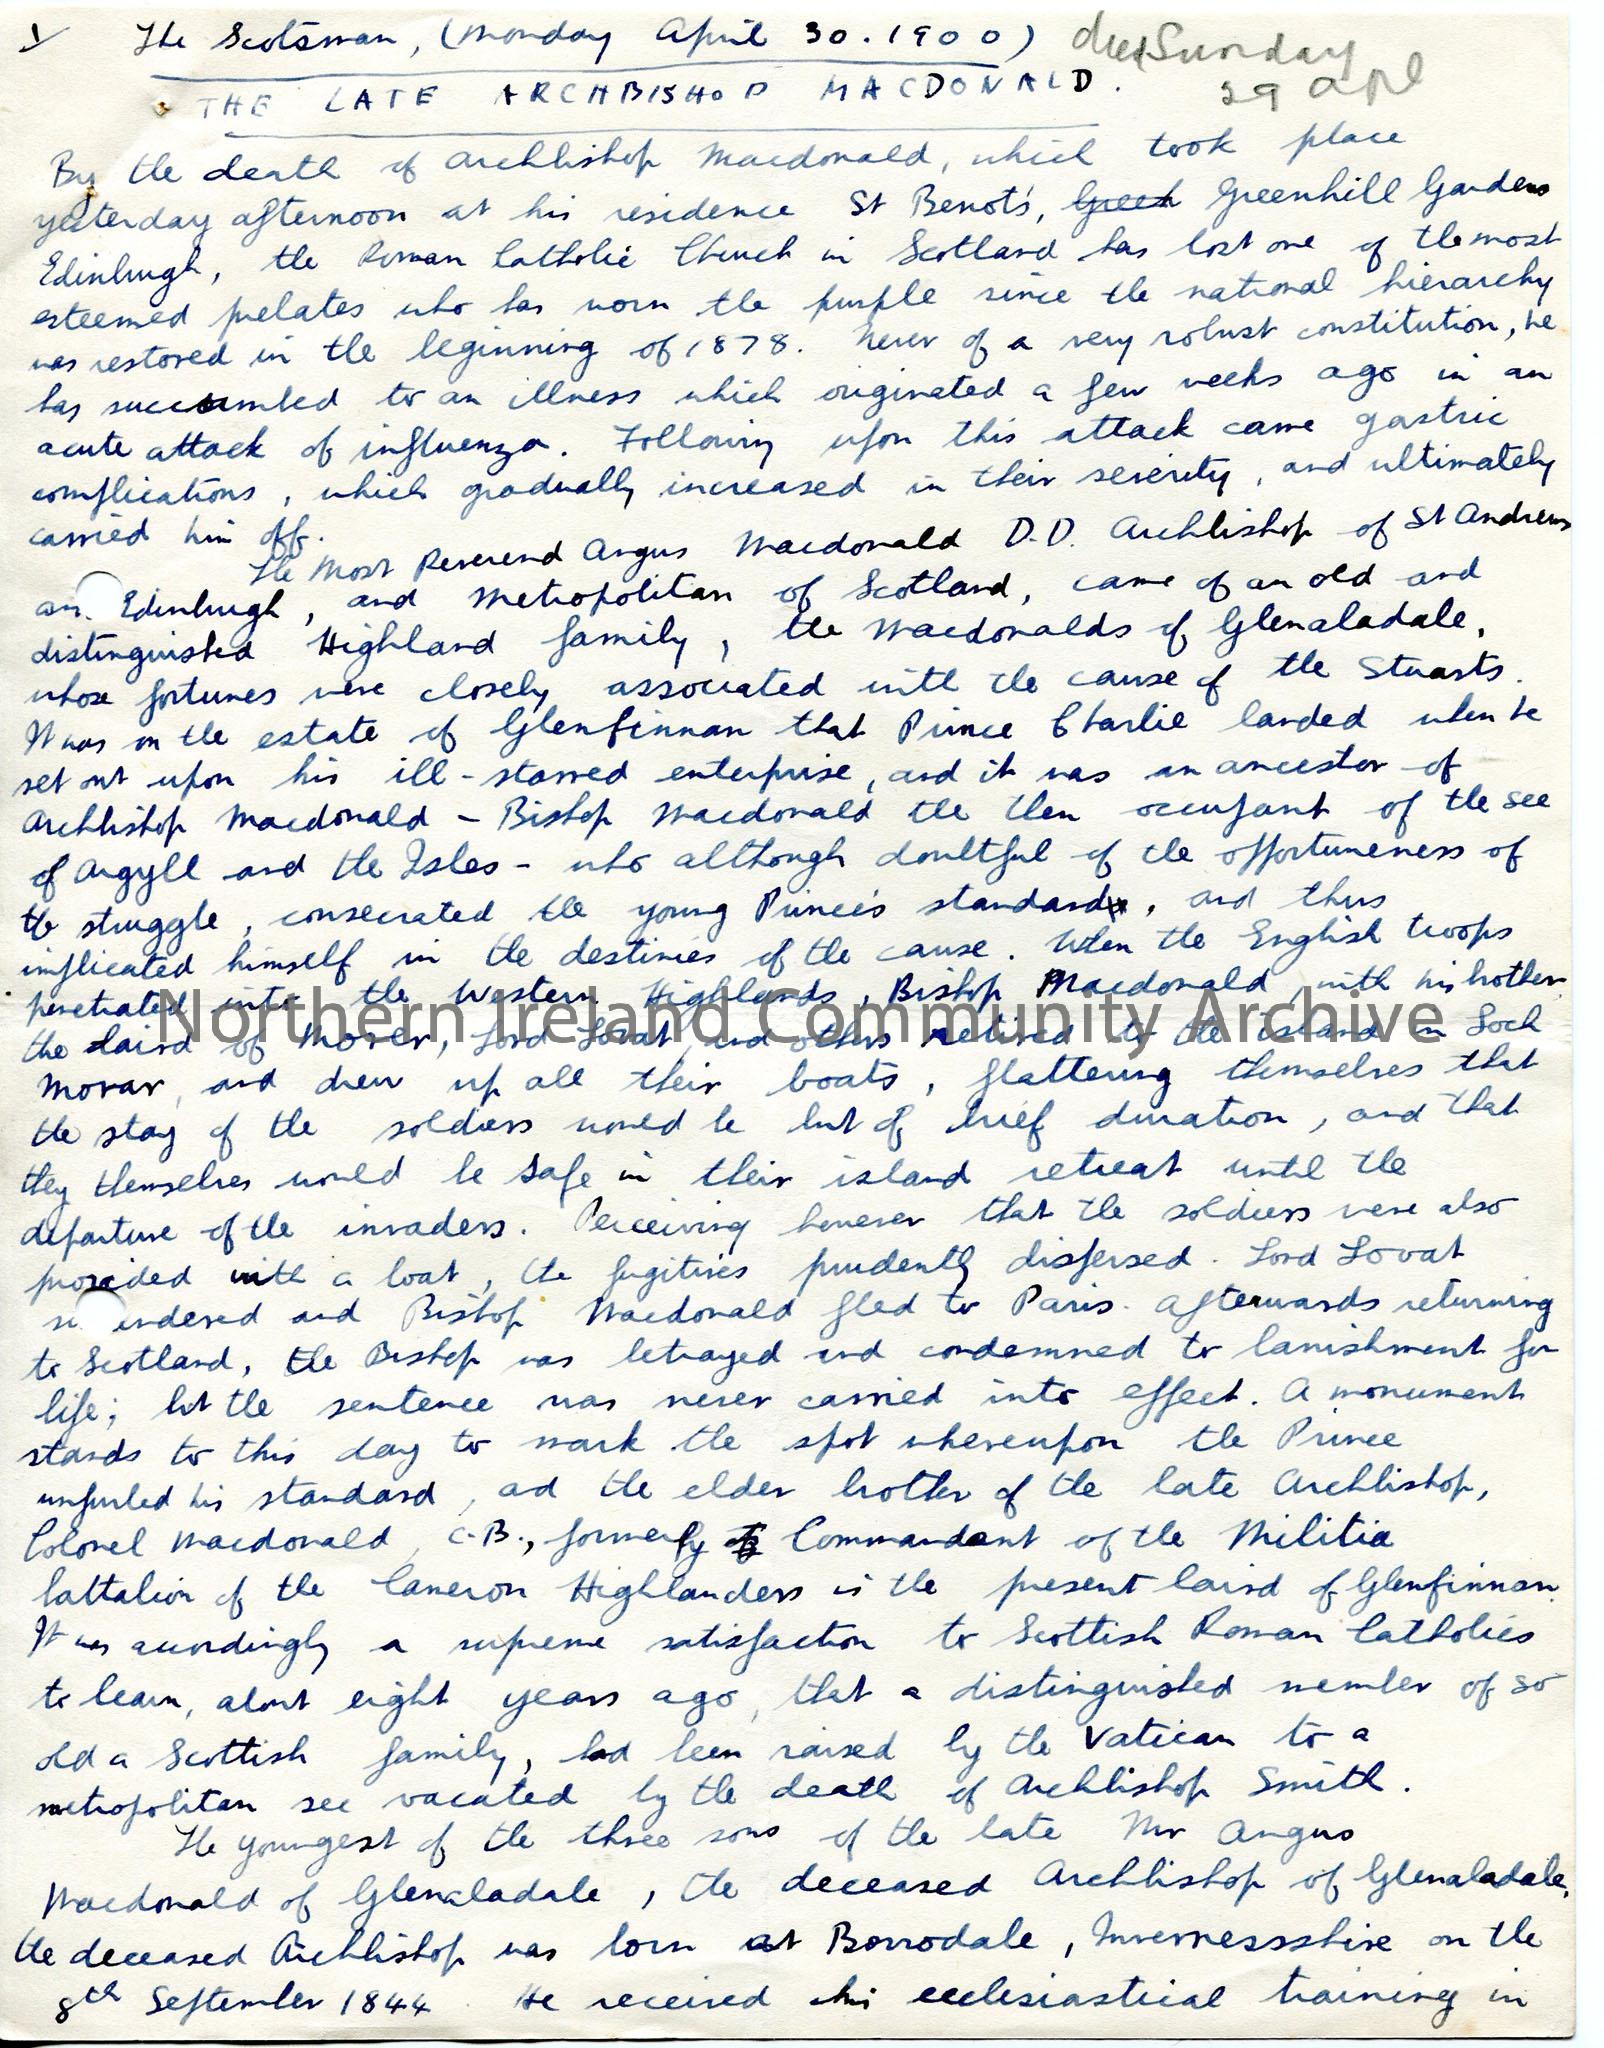 The Scotsman, (Monday April 30. 1900) died Sunday
29 Apl
THE LATE ARCHBISHOP MACDONALD.
By the death of Archbishop Macdonald, which took place
yesterday afternoon at his residence St Benot's, Green Greenhill Gardens
Edinburgh, the Roman Catholic Church in Scotland has lost one of the most
esteemed prelates who has worn the purple since the national hierarchy
was restored in the beginning of 1878. Never of a very robust constitution, he
has succumbed to an illness which originated a few weeks ago in an
acute attack of influenza. Following upon this attack came gastric
complications, which gradually increased in their severity, and ultimately
carried him off.
The Most Reverend Angus Macdonald D.D. Archbishop of St Andrews
an Edinburgh, and Metropolitan of Scotland, came of an old and
distinguished Highland family, the Macdonalds of Glenaladale,
whose fortunes were closely associated with the cause of the Stuarts.
It was on the estate of Glenfinnan that Prince Charlie landed when he
set out upon his ill-starred enterprise, and it was an ancestor of
Archbishop Macdonald - Bishop Macdonald the then occupant of the see
of Argyll and the Isles - who although doubtful of the opportuneness of
the struggle, consecrated the young Prince's standard, and thus
implicated himself in the destinies of the cause. When the English troops
penetrated into the Western Highlands, Bishop Macdonald, with his brother
the laird of Morar, Lord Lovat, and others retired to the island in Loch
Morar, and drew up all their boats, flattering themselves that
the stay of the soldiers would be but of brief duration, and that
they themselves would be safe in their island retreat until the
departure of the invaders. Perceiving however that the soldiers were also
provided with a boat, the fugitives prudently dispersed. Lord Lovat
su endered and Bishop Macdonald fled to Paris. Afterwards returning
to Scotland, the Bishop was betrayed and condemned to banishment for
life; but the sentence was never carried into effect. A monument
stands to this day to mark the spot whereupon the Prince
unfurled his standard, ad the elder brother of the late Archbishop,
Colonel Macdonald, C.B., formerly Commandant of the Militia
battalion of the Cameron Highlanders is the present laird of Glenfinnan.
It was accordingly a supreme satisfaction to Scottish Roman Catholics
to learn, about eight years ago, that a distinguished member of so
old a Scottish family, had been raised by the Vatican to a
metropolitan see vacated by the death of Archbishop Smith.
The youngest of the three sons of the late Mr Angus
Macdonald of Glenaladale, the deceased Archbishop of Glenaladale,
the deceased Archbishop was born at Borrodale, Invernessshire on the
8th September 1844. He received his ecclesiastical training in
Northern Ireland Community Archive